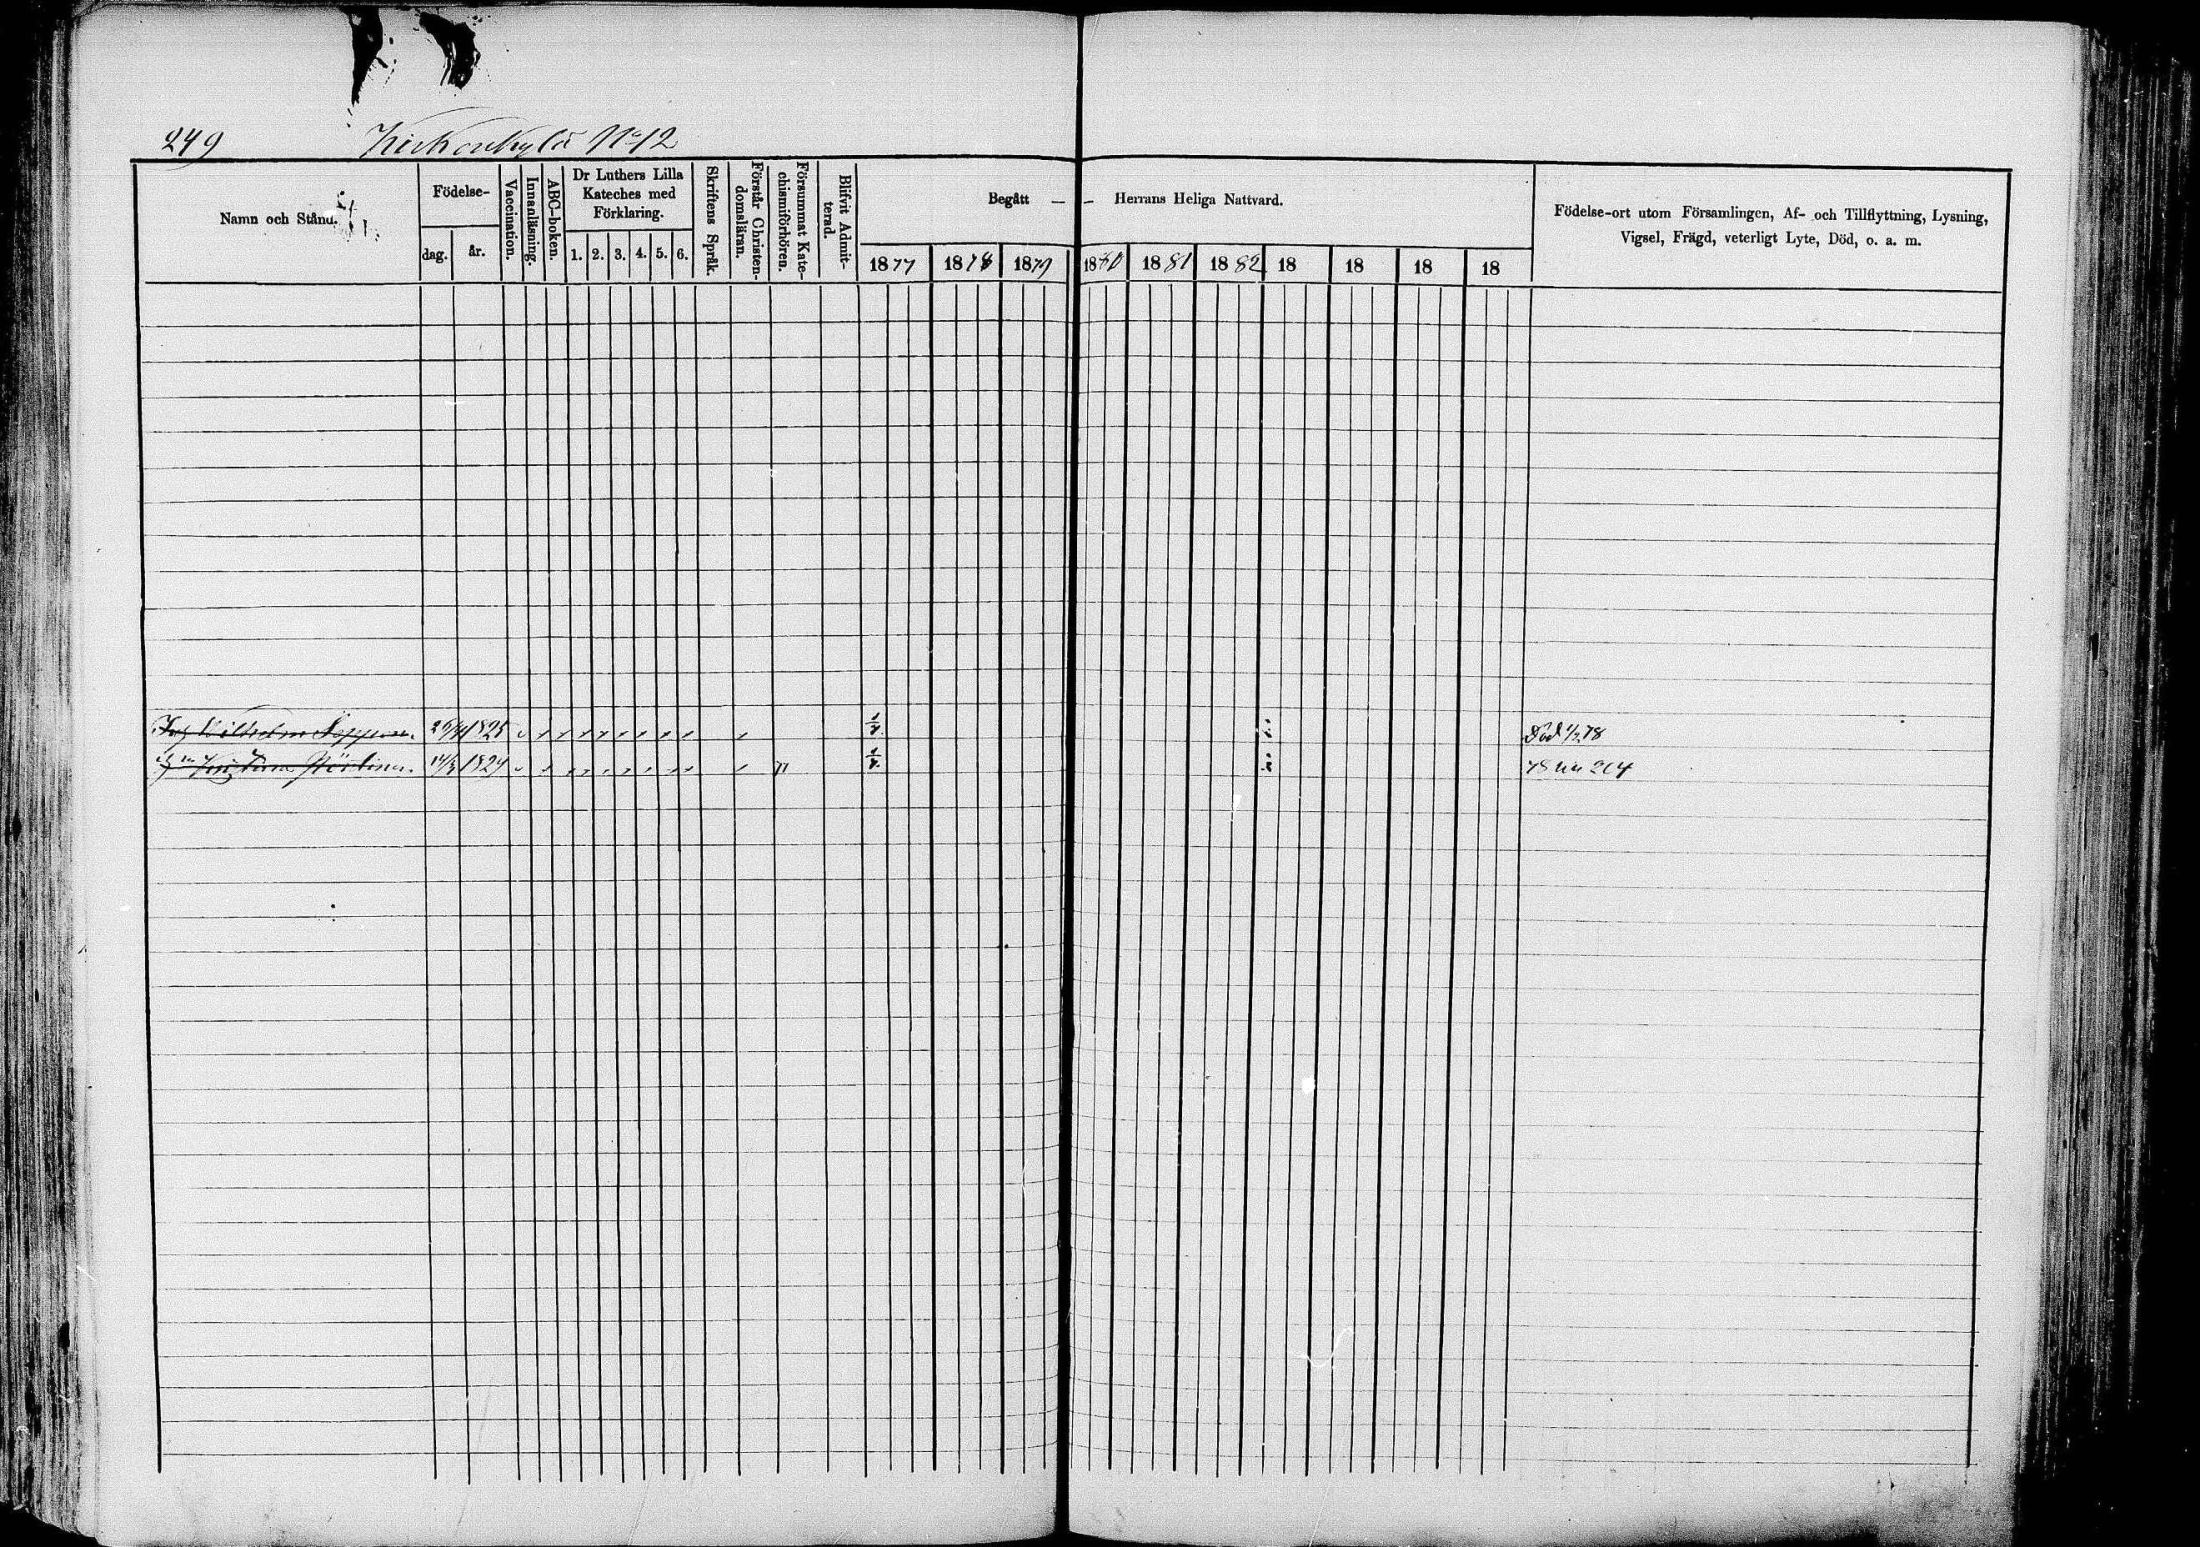 249 Kirkonkylä No 12
Namn och Stånd.
Födelse-
dag. år.
Vaccination.
Innanläsning.
ABC-boken.
Dr Luthers Lilla
Kateches med
Förklaring.
1. 2. 3. 4. 5. 6.
Skriftens Språk.
Förstår Christen-
domsläran.
Försummat Kate-
chismiförhören.
Blifvit Admit-
terad.
Begått — — Herrans Heliga Nattvard.
1877 1878 1879 1880 1881 1882 18 18 18 18
Födelse-ort utom Församlingen, Af- och Tillflyttning, Lysning,
Vigsel, Frägd, veterligt Lyte, Död, o. a. m.
Wilhelm 1825 Död 78
1824 78 264